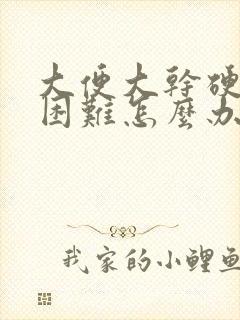 大便大幹硬
困難怎麼办
我家的小鲤鱼